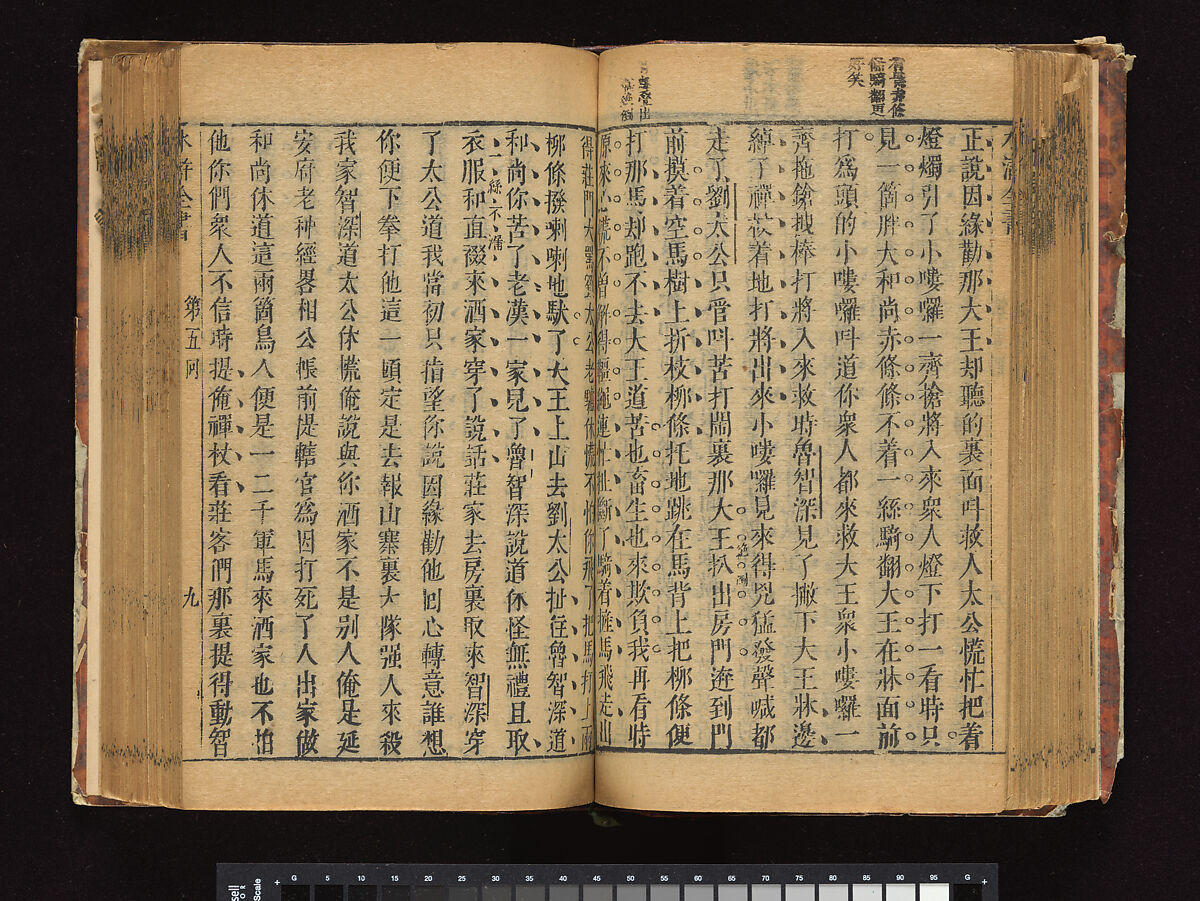 水滸全書
正說因緣勸那大王却聽的裏面呌救人太公慌忙把着
燈燭引了小嘍囉一齊搶將入來衆人燈下打一看時只
見一箇胖大和尚赤條條不着一絲騎翻大王在牀面前
打爲頭的小嘍囉呌道你衆人都來救大王衆小嘍囉一
齊拖鎗拽棒打將入來救時魯智深見了撇下大王牀邊
綽了禪杖着地打將出來小嘍囉見來得兇猛發聲喊都
走了劉太公只管呌苦打鬧裏那大王扒出房門奔到門
前摸着空馬樹上折枝柳條托地跳在馬背上把柳條便
打那馬却跑不去大王道苦也畜生也來欺負我再看時
原來心慌不曾解得韁繩連忙扯斷了騎着摌馬飛走出
得莊門大罵劉太公老驢休慌不怕你飛了把馬打上兩
柳條撥喇喇地馱了大王上山去劉太公扯住魯智深道
和尚你苦了老漢一家兒了魯智深說道休怪無禮且取
衣服和直裰來洒家穿了說話莊家去房裏取來智深穿
一絲不掛
了太公道我當初只指望你說因緣勸他囘心轉意誰想
你便下拳打他這一頓定是去報山寨裏大隊强人來殺
我家智深道太公休慌俺說與你洒家不是别人俺是延
安府老种經畧相公帳前提轄官爲因打死了人出家做
和尚休道這兩箇鳥人便是一二千軍馬來洒家也不怕
他你們衆人不信時提俺禪杖看莊客們那裏提得動智
水滸全書
第五囘
九